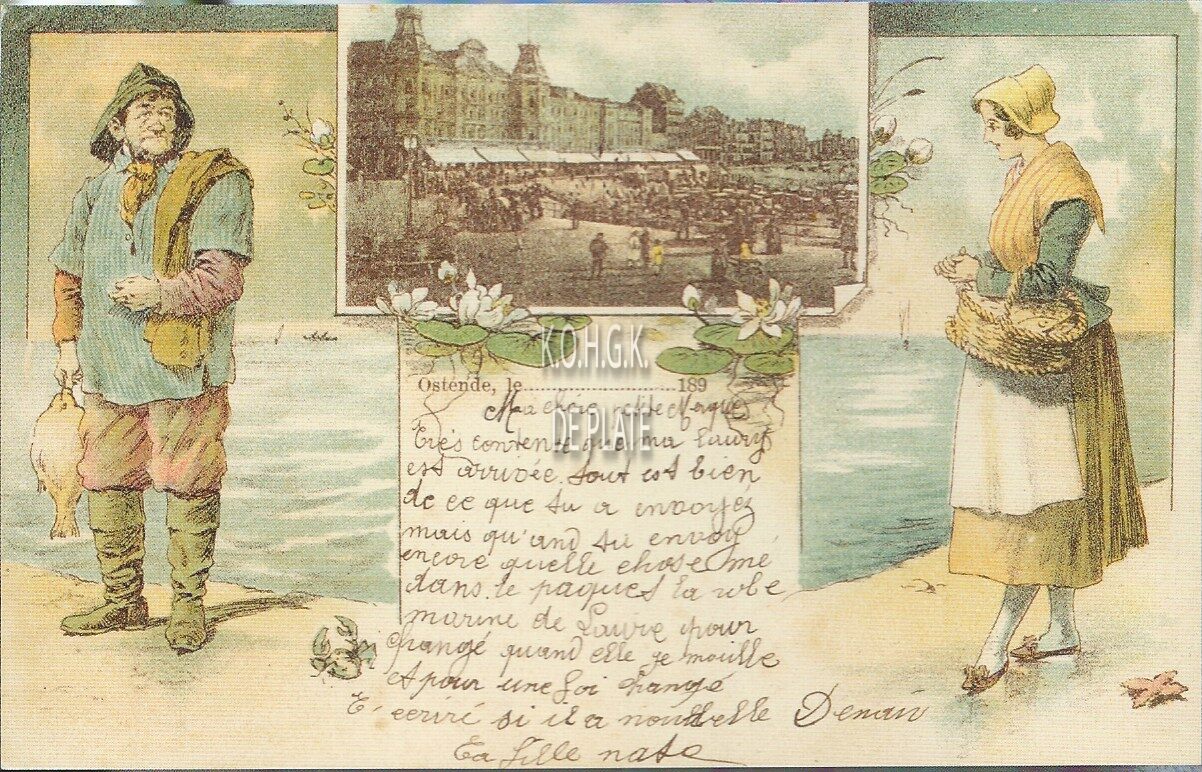 K.O.H.G.K.
DE PLATE
Ostende, le 189
Ma chère petite
très contente que ma
est arrivée. tout est bien
de ce que tu a envoyez
mais qu'and tu envoy
encore quelle chose me
dans le paquet la robe
marine de Laure pour
changé quand elle se mouille
et pour une foi changé
écrire si il a nouvelle Denau
Ta fille